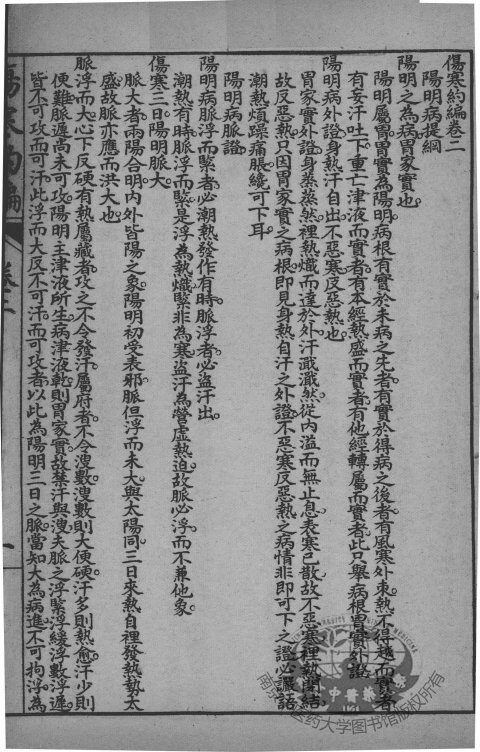 傷寒約編卷二
陽明病提綱
陽明之為病胃家實也
陽明屬胃胃實為陽明病根有實於未病之先者有實於得病之後者有風寒外束熱不得越而實者
有妄汗吐下重亡津液而實者有本經熱盛而實者有他經轉屬而實者此只舉病根胃實外證
陽明病外證身熱汗自出不惡寒反惡熱也
胃家實外證身蒸蒸然裡熱熾而達於外汗濈濈然從內溢而無止息表寒已散故不惡寒裡熱閉結
故反惡熱只因胃家實之病根即見身熱自汗之外證不惡寒反惡熱之病情非即可下之證必讝語
潮熱煩躁痛脹纔可下耳
陽明病脈證
陽明病脈浮而緊者必潮熱發作有時脈浮者必盜汗出
潮熱有時脈浮而緊是浮為熱熾緊非為寒盜汗為營虛熱迫故脈必浮而不兼他象
傷寒三日陽明脈大
脈大者兩陽合明內外皆陽之象陽明初受表邪脈但浮而未大與太陽同三日來熱自裡發熱勢太
盛故脈亦應而洪大也
脈浮而大心下反硬有熱屬藏者攻之不令發汗屬府者不令溲數溲數則大便硬汗多則熱愈汗少則
便難脈遲尚未可攻陽明主津液所生病津液乾則胃家實故禁汗與溲夫脈之浮緊浮緩浮數浮遲
皆不可攻而可汗此浮而大反不可汗而可攻者以此為陽明三日之脈當知大為病進不可拘浮為
傷寒約編
卷二
南京中医药大学图书馆版权所有